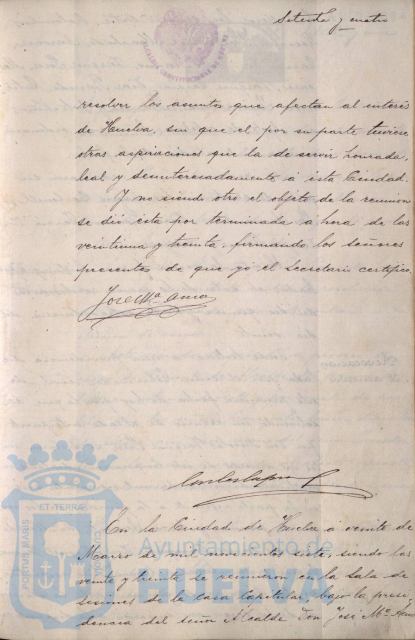 Setenta y cuatro
resolver los asuntos que afectan al interés
de Huelva, sin que el por su parte tuviese
otras aspiraciones que la de servir honrada,
leal y desinteresadamente á esta Ciudad.
Y no siendo otro el objeto de la reunion
se dió esta por terminada a hora de las
veintiuna y treinta, firmando los señores
presentes de que yo el Secretario certifico
José Mª
PORTUS MARIS
ET TERRÆ
CUSTODIA
Ayuntamiento de
HUELVA
En la Ciudad de Huelva á veinte de
Marzo de mil novecientos siete, siendo las
veinte y treinta se reunieron en la Sala de
sesiones de la casa Capitular, bajo la presi
dencia del señor Alcalde Don José Mª